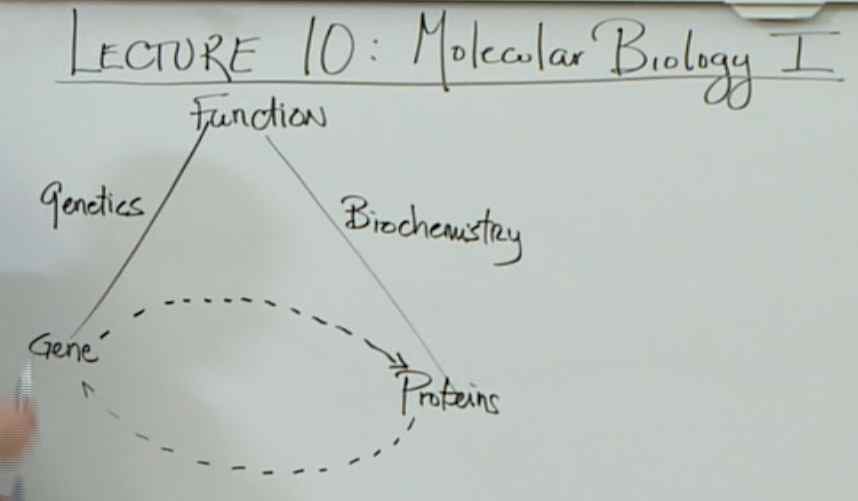 LECTURE 10: Molecular Biology I
Function
Genetics
Biochemistry
Gene
Proteins